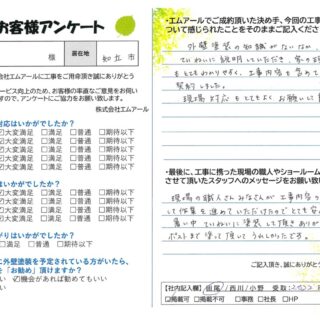 お客様アンケート
様 居在地 知立市
会社エムアールに工事をご用命頂き誠にありがとう
ービス向上のため、お客様の率直なご意見をお伺い
すので、アンケートにご協力をお願い致します。
株式会社エムアール
対応はいかがでしたか?
☑大変満足 □満足 □普通 □期待以下
☑大変満足 □満足 □普通 □期待以下
☑大変満足 □満足 □普通 □期待以下
☑大変満足 □満足 □普通 □期待以下
はいかがでしたか?
☑大変満足 □満足 □普通 □期待以下
☑大変満足 □満足 □普通 □期待以下
☑大変満足 □満足 □普通 □期待以下
☑大変満足 □満足 □普通 □期待以下
がりはいかがでしたか?
足 □満足 □普通 □期待以下
に外壁塗装を予定されている方がいたら、
を「お勧め」頂けますか?
い ☑機会があれば勧めてもいい
・エムアールでご成約頂いた決め手、今回の工事
ついて感じられたことをそのままご記入ください
外壁塗装の知識がないなか、
ていねいに説明していただき、家の
もとてもわかりやすく、工事内容も含めて
契約しました。
現場対応もとてもよく、お願いして
・最後に、工事に携った現場の職人やショールーム
させて頂いたスタッフへのメッセージをお願い致
現場の職人さんみなさんが工事内容
して作業を進めていただけたのでとても安
暑い中ていねいに塗装して頂きあり
ポストまで塗って頂いてうれしかったです。
ご記入頂き、誠にありがとう
【社内記載欄】田尾/西川/小野 受取:
□掲載可 □掲載不可 □事務 □社長 □HP